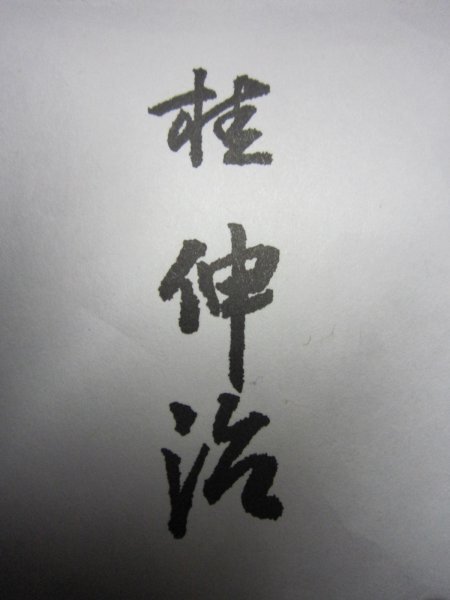 桂伸治